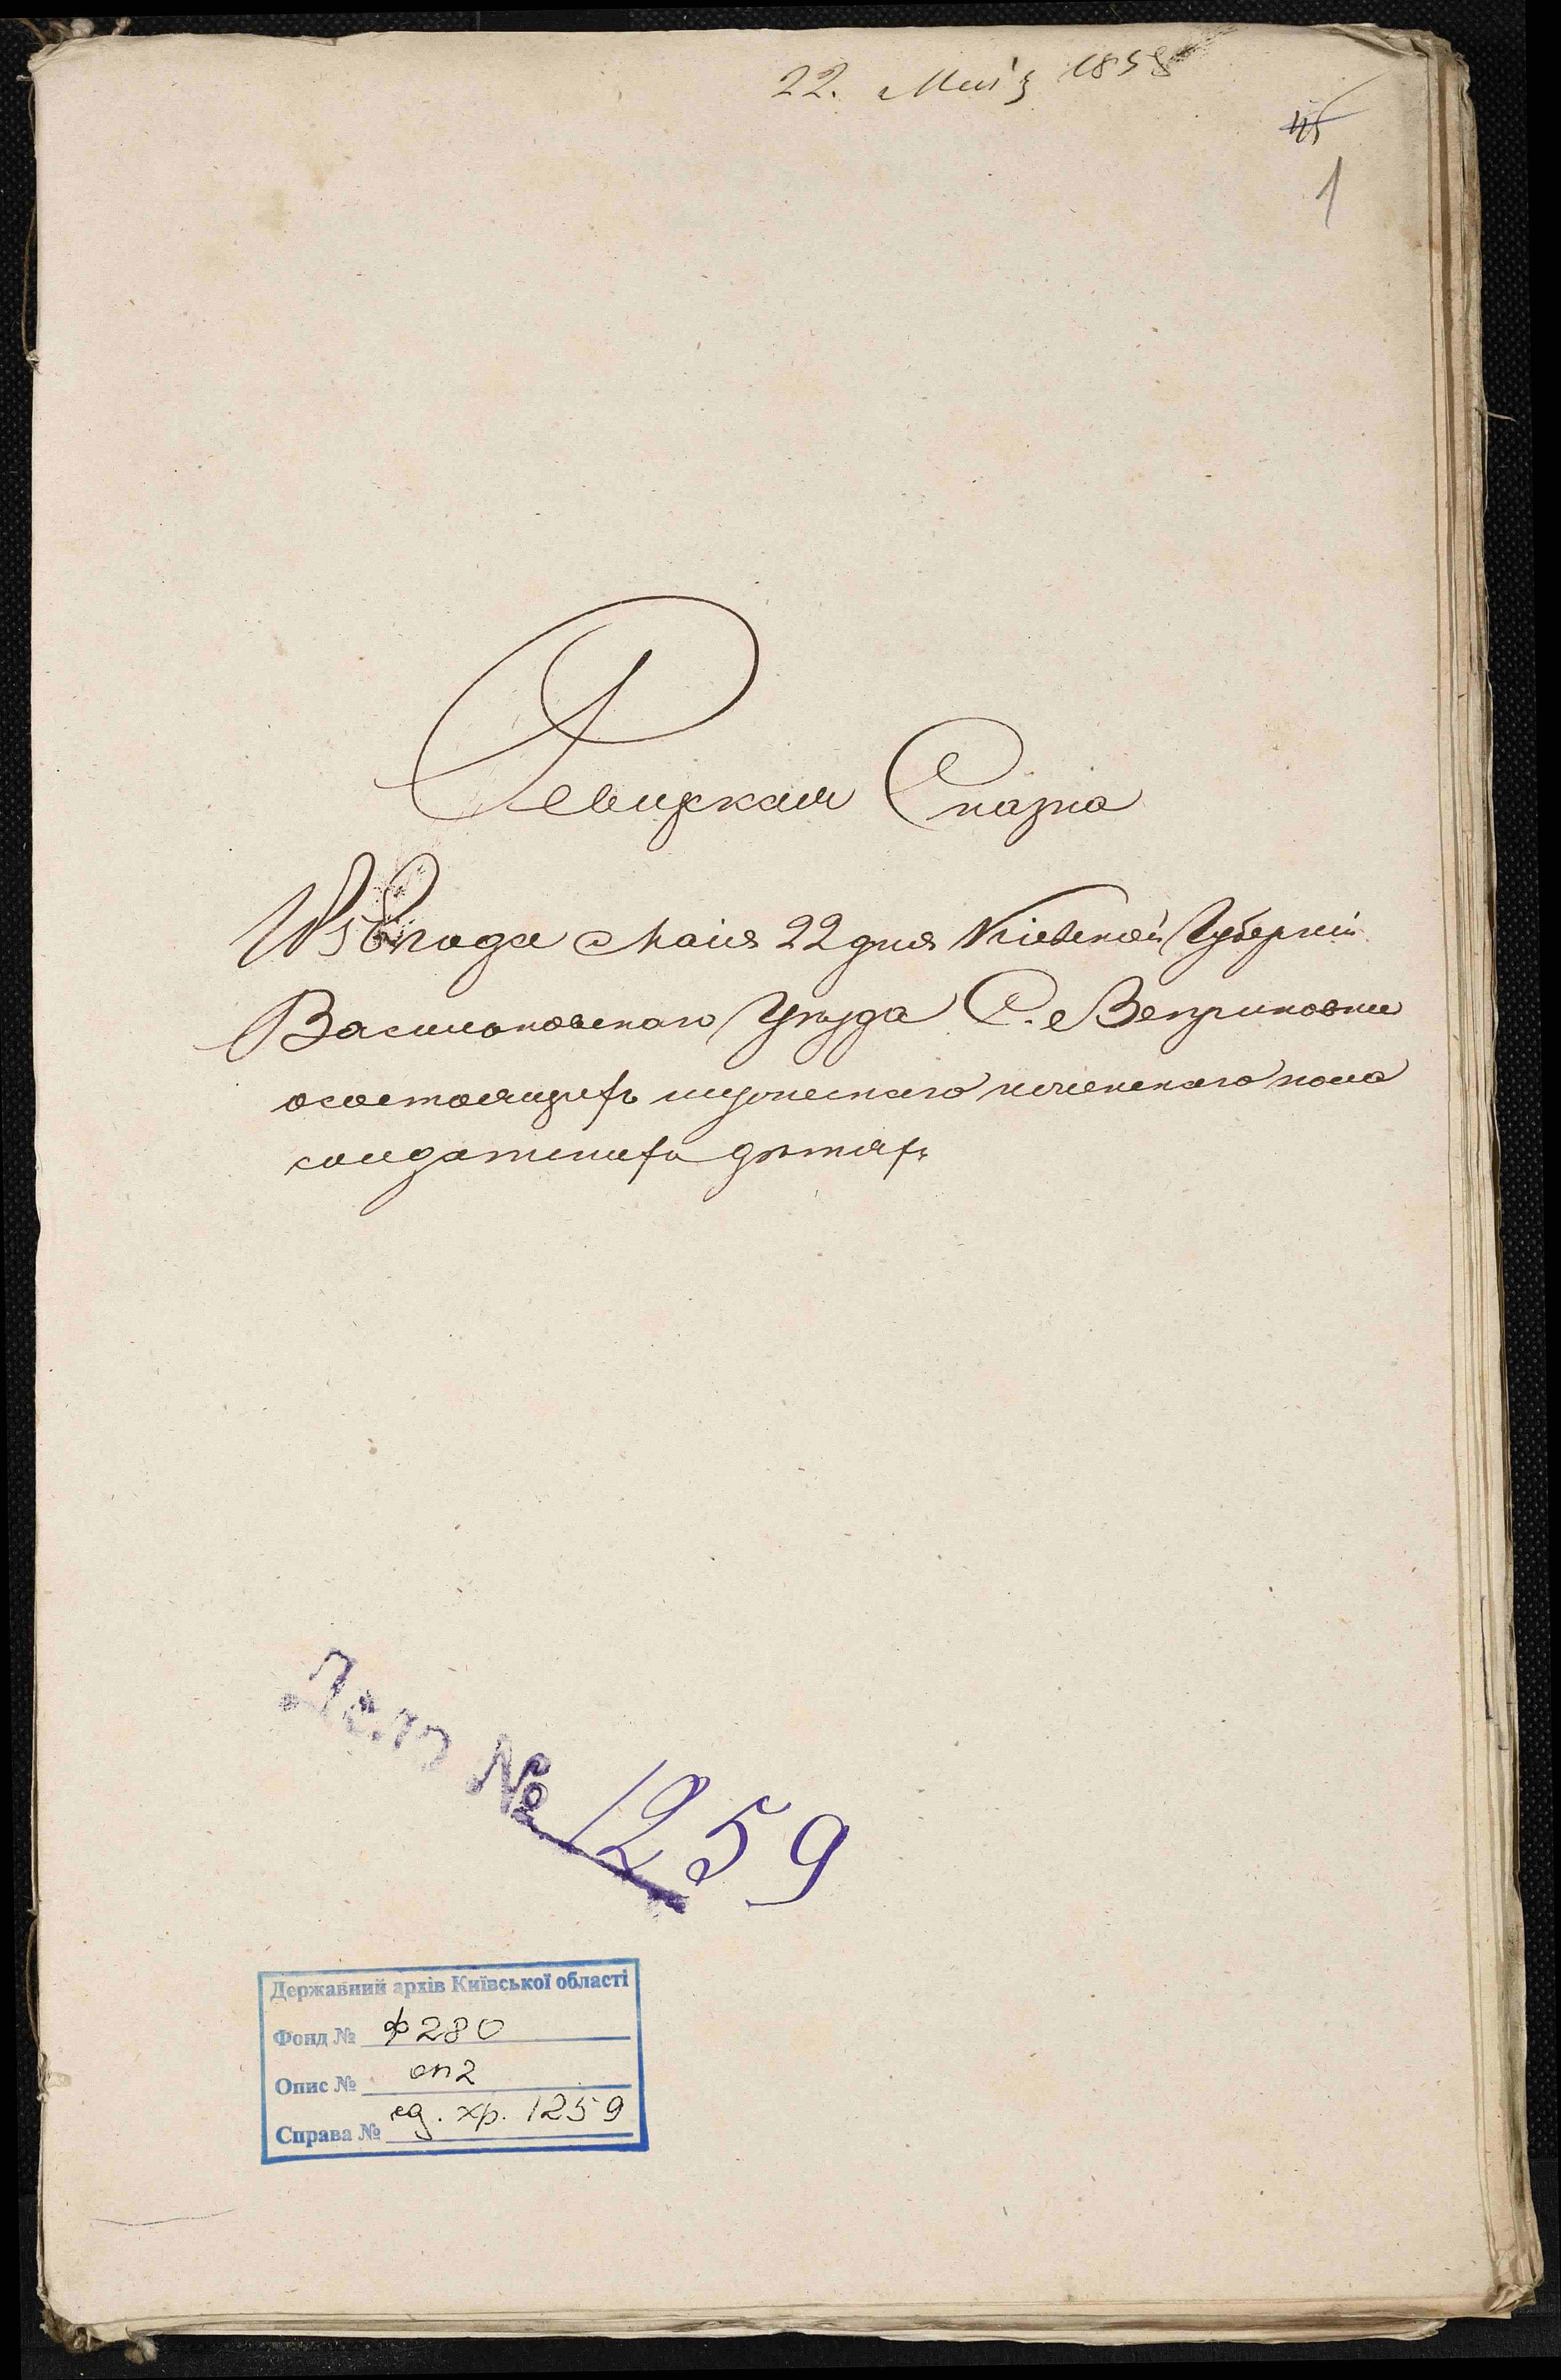 22. Маія 1858
45
1
Ревизская Сказка
1858 года Маія 22 дня Кіевской Губерніи
Васильковскаго Уѣзда С. Веприковки
о состоящихъ мужескаго и женскаго пола
солдатскихъ дѣтяхъ
Дело № 1259
Державний архів Київської області
Фонд № ф 280
Опис № оп 2
Справа № ед. хр. 1259